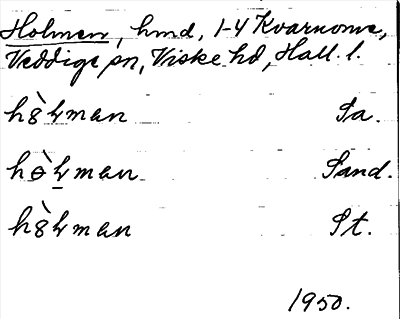 Holmen, hmd, 1-4 Kvarnome,
Veddige sn, Viske hd, Hall. l.
hȣ̀ɫman Sa.
hɵ̀ɫ̠man Sand.
hȣ̀ɫman St.
1950.